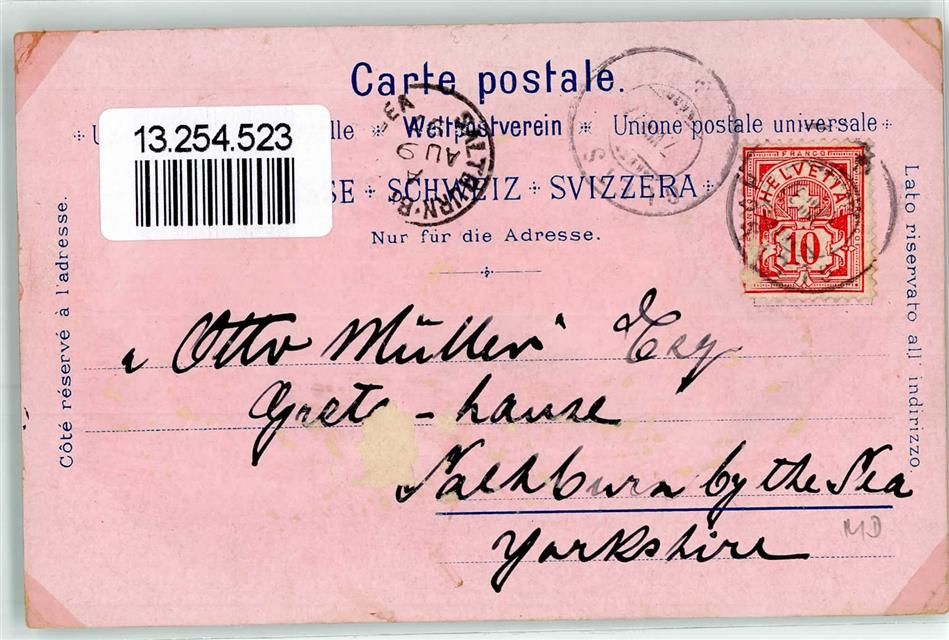 Carte postale.
lle * Weltpostverein * Unione postale universale
13.254.523
SE SCHWEIZ SVIZZERA
Nur für die Adresse.
SALTBURN-B SEA
A
AU 9
FRANCO
HELVETIA
10
Côté réservé à l'adresse.
Lato riservato all' indirizzo.
Otto Müller Esq
Greta - hause
Salhburn by the Sea
Yorkshire
MD